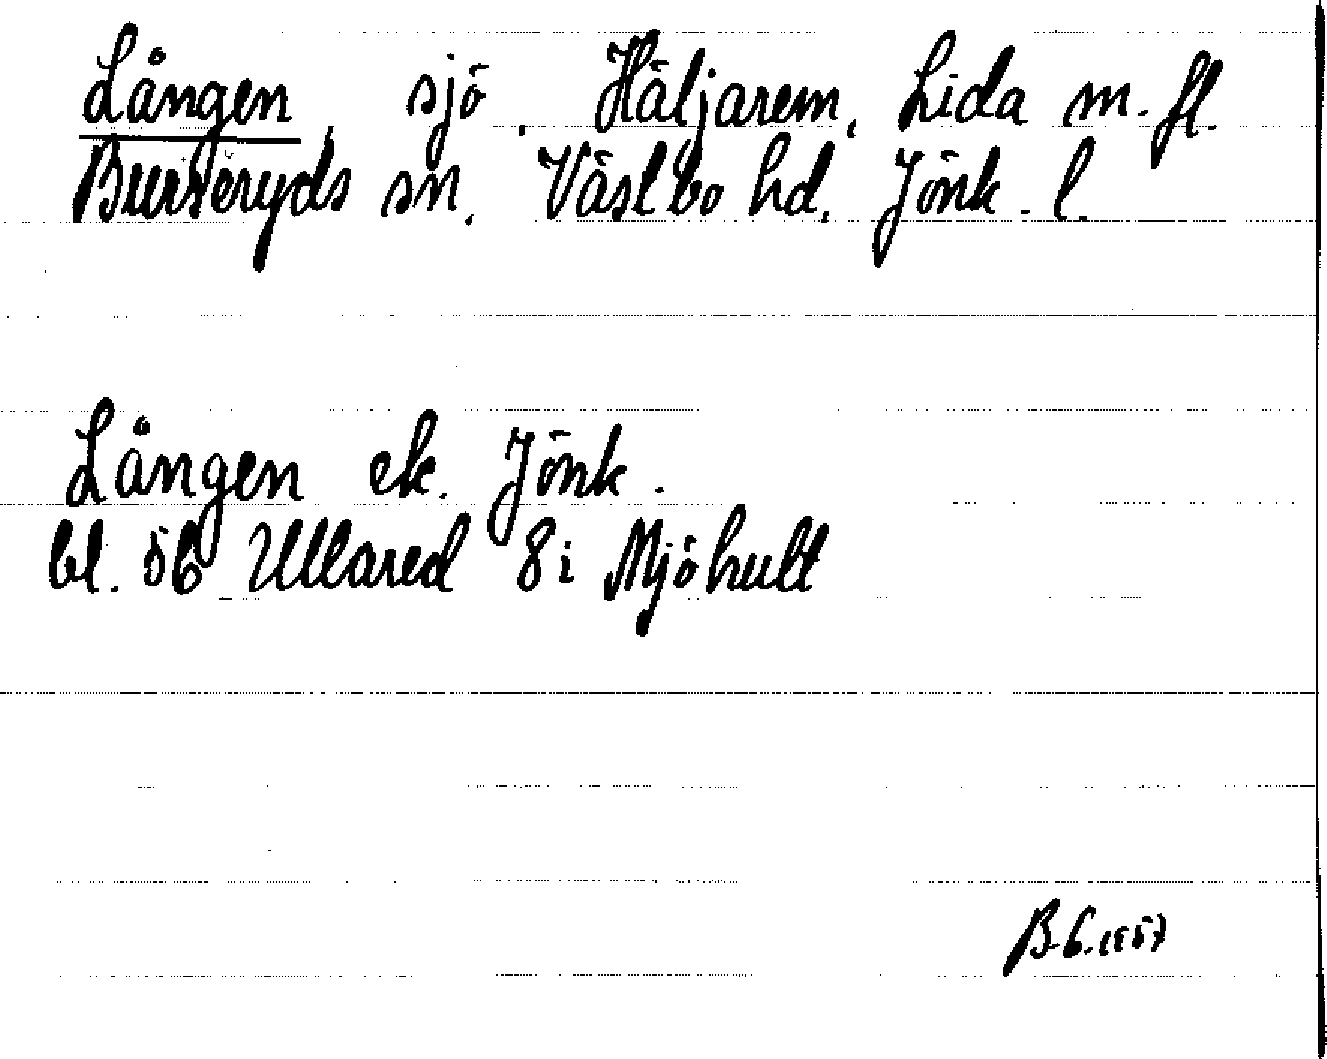 Lången, sjö, Häljarem, Lida m.fl.
Burseryds sn. Västbo hd. Jönk. l.
Lången ek. Jönk.
bl. öb Ullared 8i Mjöhult